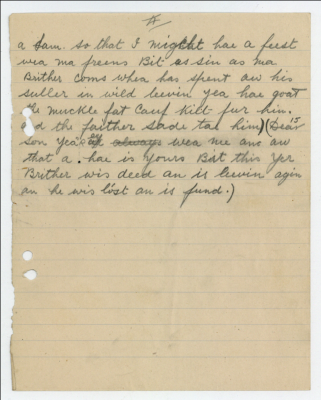 a Lam. so that I might hae a feest
wea ma freens Bit as sin as ma
Brither coms whea has spent aw his
siller in wild leevin yea hae goat
the muckle fat Cauf kilt fur him.
And the faither sade tae him) (Dear 15
son yea ar always wea me ana aw
that a. hae is yours Bit this yer
Brither wis deed an is leevin agin
an he wis lost an is fund.)